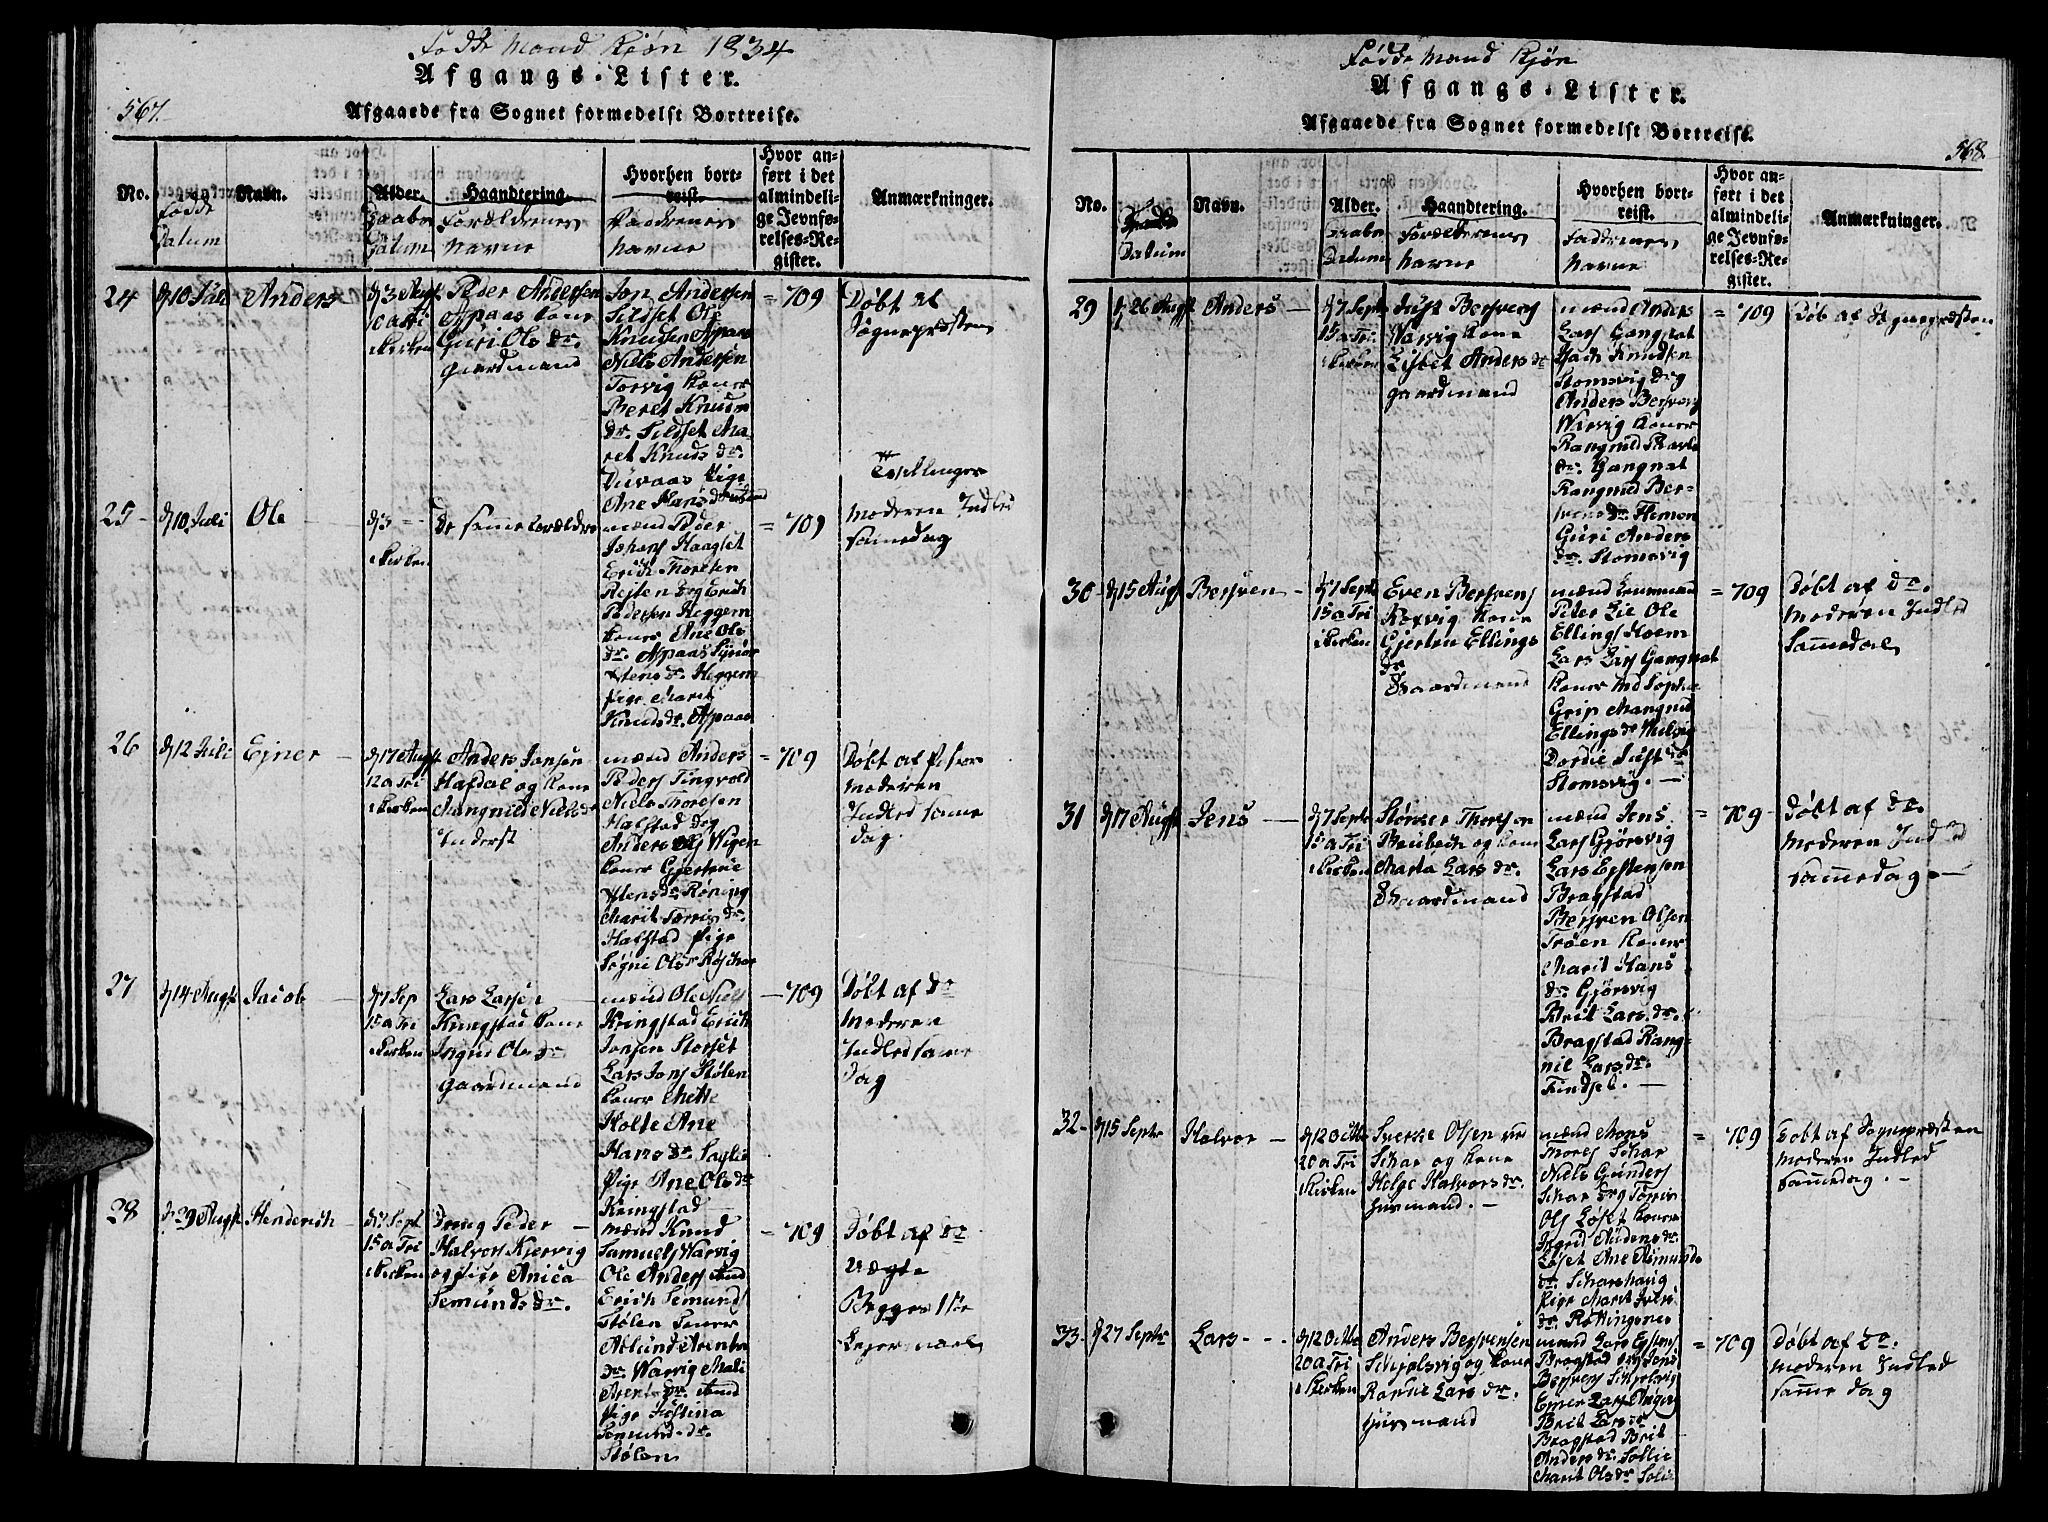 Fødde Mand Kiøn 1834
Afgangs-Lister.
567.
Afgaaede fra Sognet formedelst Bortreise.
No.
Fødde
Datum
Navn.
Alder.
Daabs
Datum
Haandtering.
Forældrenes
Navne
Hvorhen bort-
reist.
Faddernes
Navne
Hvor an-
ført i det
almindeli-
ge Jevnfø-
relses-Re-
gister.
Anmærkninger.
24
d 10 Juli
Anders
d 3 Augst
10 a Tri
i Kirken
Peder Andersen
Aspaas Kone
Guri Ols Dr.
Gaardmand
Jon Andersen
Sildset Ole
Knudsen Aspaas
Niels Andersen
Torvig Koner
Beret Knuds
Dr. Sildset Ma
ret Knuds Dr.
Duraas Pige
Ane Hans Dr
= 709
Døbt af
Sognepræsten
Tvillinger
25 -
d 10 Juli
Ole
d 3 - -
i Kirken
De samme Forældre
mænd Peder
Johans Haagset
Erich Thoresen
Rejten Drg Erich
Pedersen Heggem
Koner Ane Ols
Dr. Aspaas
Stens Dr. Heggem
Pige Marit
Knuds Dr. Aspaas
= 709
Moderen Indled
samedag
26
d 12 Juli
Ejner
d 17 Augst
12 a Tri
i Kirken
Anders Jonsen
Hafdal og Kone
Mangnild Niels Dr
Inderst
mænd Anders
Peders Tingvold
Niels Thoresen
Halstad Drg
Anders Ols Wigen
Koner Gjertrue
Stens Dr. Røning
Marit Torris Dr.
Halstad Pige
Signi Ols Dr
= 709
Døbt af
Moderen
Indled samme
dag.
27
d 14 Augst
Jacob
d 7 Sep
15 a Tri
i Kirken
Lars Larsen
Kringstad Kone
Ingri Ols Dr
Gaardmand
mænd Ole Niels
Kringstad Erich
Jonsen Storset
Lars Jons Stølen
Koner Mette
Holte Ane
Hans Dr.
Pige Ane Ols Dr
Kringstad
- 709
Døbt af Do
Moderen
Indled same
Dag
28
d 29 Augst
Henderich
d 7 Sept
15 a Tri
i Kirken
Dreng Peder
Halvors Kjervig
og Pige Anica
Semunds Dr.
mænd Knud
Samuels Warvig
Ole Anders
Erich Semunds
Stølen Koner
Aslaug Arenths
Dr. Warvig Mali
Arents Dr.
Pige Justina
Semunds Dr.
Stølen
= 709
Døbt af Do
Uægte
Begges 1ste
Lejermaal
Fødde Mand Kjøn
Afgangs-Lister.
Afgaaede fra Sognet formedelst Bortreise.
568.
No.
Fødde
Datum
Navn.
Alder.
Daabs
Datum
Haandtering.
Forældrenes
Navne
Hvorhen bort-
reist.
Faddernes
Navne
Hvor an-
ført i det
almindeli-
ge Jevnfø-
relses-Re-
gister.
Anmærkninger.
29
d 26 Augst
Anders
d 7 Sept
15 a Tri
i Kirken
Just Bersvens
Warvig Kone
Lisbet Anders Dr
Gaardmand
mænd Anders
Lars Gangnat
Isach Knudsen
Stomsvig Drg
Anders Bersvens
Warvig Koner
Rangnild
Dr. Gangnat
Rangnild Ber-
svens Dr.
Guri Anders
Dr. Stomsvig
= 709
Døb af Sognepræsten
30 -
d 15 Augst
Bersven
d 7 Sept
15 a Tri
i Kirken
Even Bersvens
Roxvig Kone
Gjerten Ellings
Dr
Gaardmand
mænd
Peter Lie Ole
Ellings Hoem
Lars Lars Gangnat
Koner Md Sophie
Grip Mangnild
Ellings Dr
Dordie Just Dr
Stomsvig. -
= 709
Døbt af Do.
Moderen Indled
Sammedag
31
d 17 Augst
Jens
d 7 Sept
15 a Tri
i Kirken
Størker Thoresen
Beubech og Kone
Marta Lars Dr.
Gaardmand
mænd Jens
Lars Gjørsvig
Lars Estensen
Bragstad
Bersven Olsen
Trøen Koner
Marit Hans
Dr. Gjørsvig
Brit Lars Dr.
Bragstad Rang-
nil Lars Dr.
Findset. -
= 709 -
Døbt af Do.
Moderen Indled
samedag. -
32 -
d 15 Septr
Halvor
d 12 Octbr
20 a Tri
i Kirken
Sverke Olsen
Schar og Kone
Helge Halvors Dr.
Huusmand. -
mænd Mons
Mons Schar
Niels Gunders
Schar Drg Torris
Ols Løset Koner
Ingrid Audens Dr.
Løset Ane Asmunds
Dr. Scharshaug
Pige Marit Ivers
Dr. Rottingsnes
= 709
Døbt af Sognepræsten
Moderen Indled
samedag. -
33 -
d 27 Septr
Lars
d 12 Octbr
20 a Tri
i Kirken
Anders Bersvensen
Schjølsvig og Kone
Randie Lars Dr.
Huusmand
mænd Lars
Bragstad Drg Jens
Bersvens Schjølsvig
Einer Lars Angvig
Brit Lars Dr
Bragstad Brit
Anders Dr. Sollie
Marit Ols Dr Solie
= 709
Døbt af Do.
Moderen Indled
samme dag